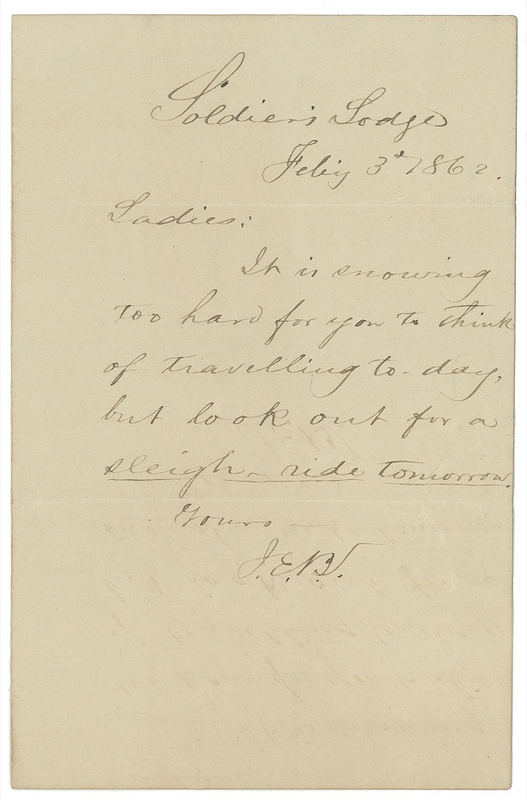 Soldier's Lodge
Feb'y 3d 1862.
Ladies:
It is snowing
too hard for you to think
of travelling to-day,
but look out for a
sleigh-ride tomorrow.
Yours —
J.E.B.